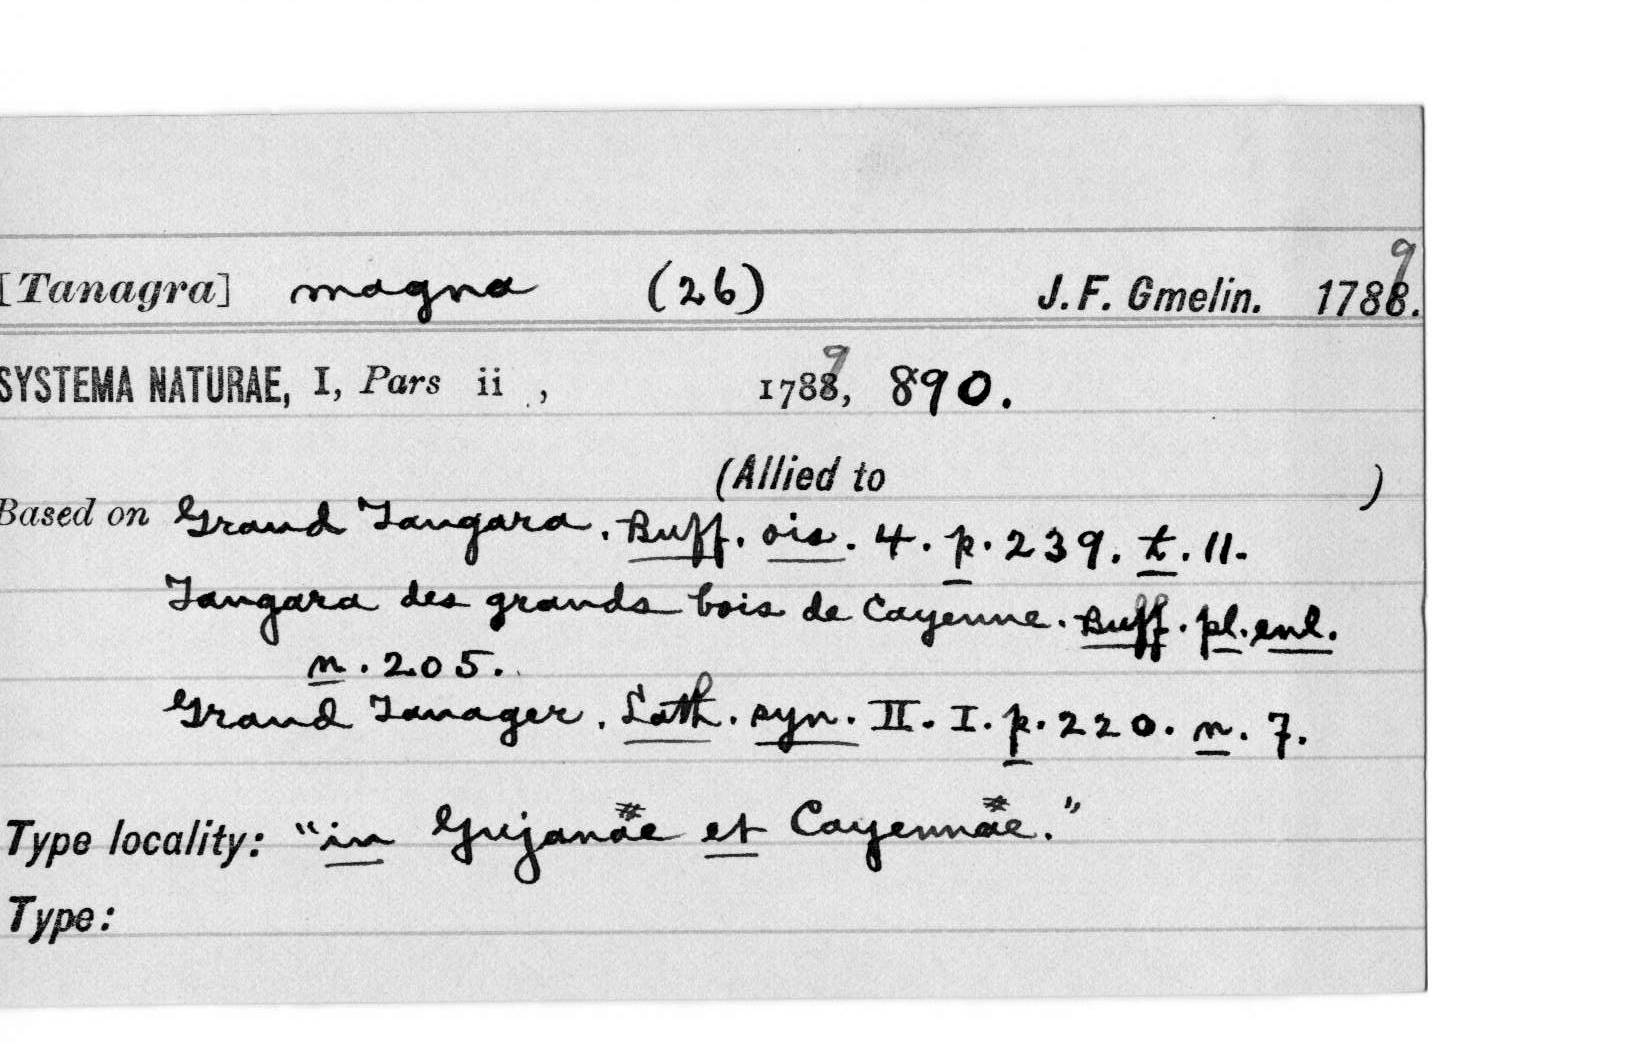 [Tanagra] magna (26) J. F. Gmelin. 1789.
SYSTEMA NATURAE, I, Pars ii , 1789, 890.
(Allied to )
Based on Grand Tangara. Buff. ois. 4. p. 239. t. 11.
Tangara des grands bois de Cayenne. Buff. pl. enl.
n. 205.
Grand Tanager. Lath. syn. II. I. p. 220. n. 7.
Type locality: "in Gujanae et Cayennae."
Type: